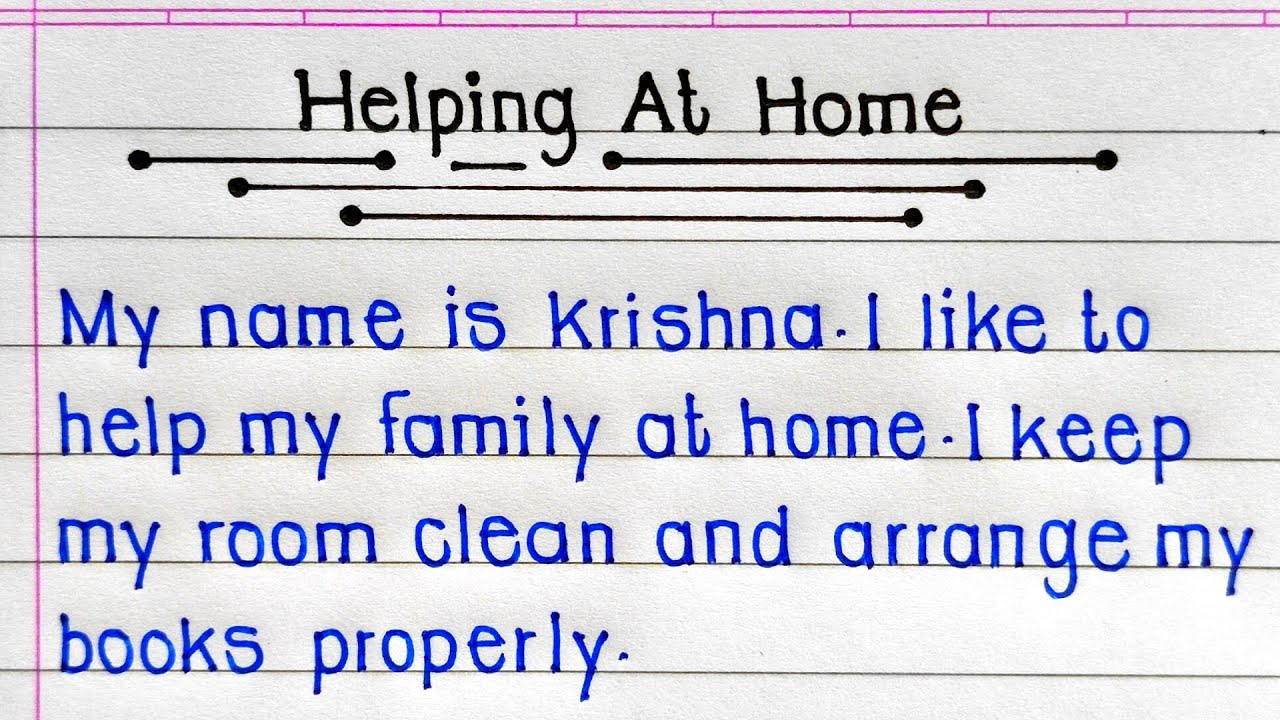 Helping At Home
My name is Krishna. I like to
help my family at home. I keep
my room clean and arrange my
books properly.